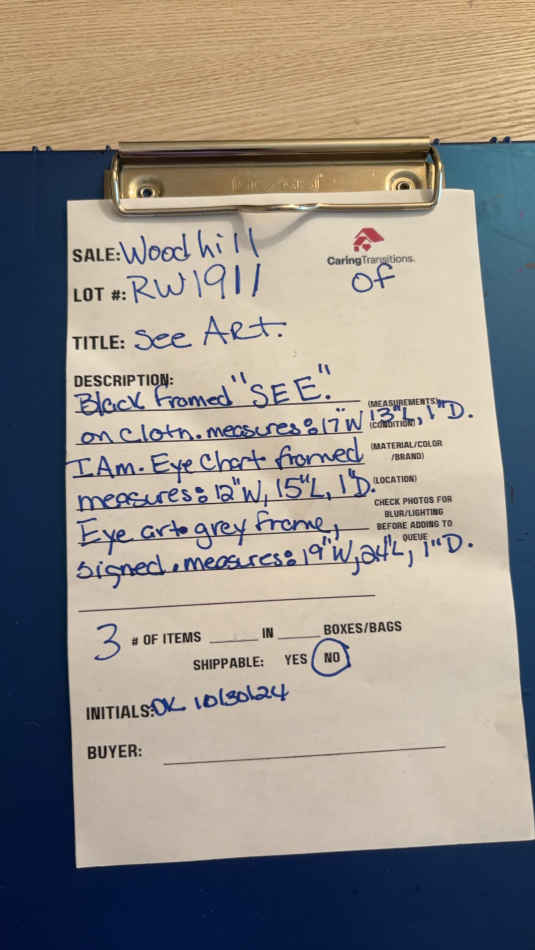 SALE: Woodhill
CaringTransitions.
LOT #: RW1911
Of
TITLE: See Art.
DESCRIPTION:
Black Framed "SEE."
(MEASUREMENTS)
on Cloth. measures: 17"W 13"L, 1"D.
(CONDITION)
I Am. Eye Chart framed
(MATERIAL/COLOR
/BRAND)
measures: 12"W, 15"L, 1"D.
(LOCATION)
CHECK PHOTOS FOR
BLUR/LIGHTING
BEFORE ADDING TO
QUEUE
Eye art grey frame,
signed. measures: 19"W, 24"L, 1"D.
3 # OF ITEMS ____ IN ____ BOXES/BAGS
SHIPPABLE: YES NO
INITIALS: DK 10/30/24
BUYER: